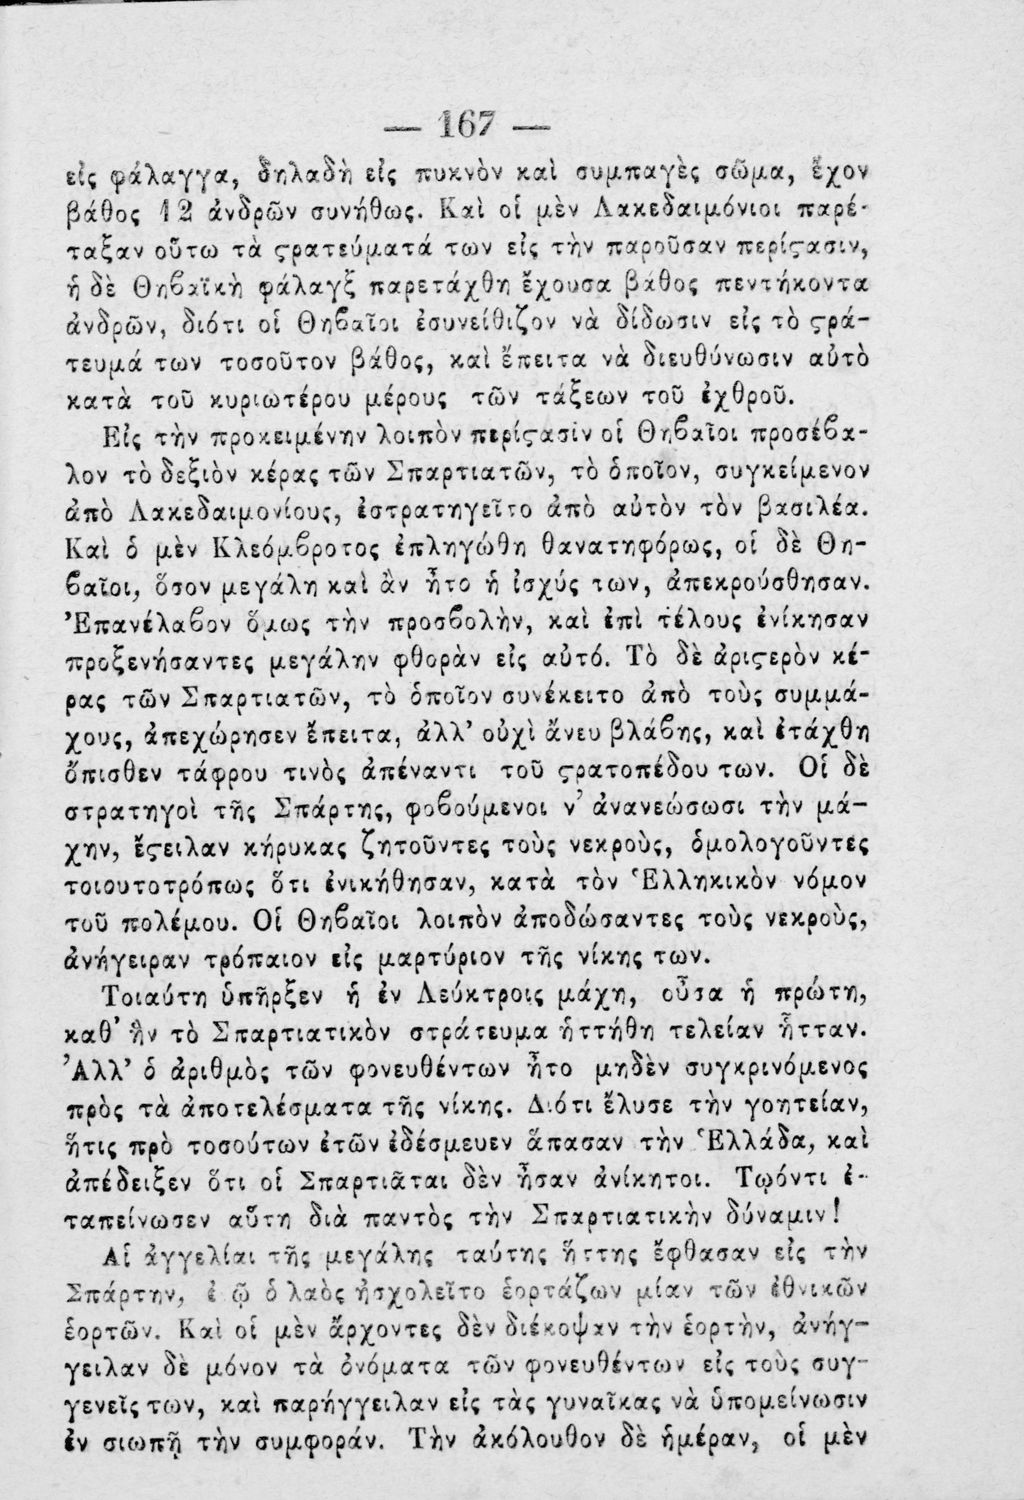 — 167 —
εἰς φάλαγγα, δηλαδὴ εἰς πυκνὸν καὶ συμπαγὲς σῶμα, ἔχον
βάθος 12 ἀνδρῶν συνήθως. Καὶ οἱ μὲν Λακεδαιμόνιοι παρέ-
ταξαν οὕτω τὰ ϛρατεύματά των εἰς τὴν παροῦσαν περίϛασιν,
ἡ δὲ Θηβαϊκὴ φάλαγξ παρετάχθη ἔχουσα βάθος πεντήκοντα
ἀνδρῶν, διότι οἱ Θηβαῖοι ἐσυνείθιζον νὰ δίδωσιν εἰς τὸ ϛρά-
τευμά των τοσοῦτον βάθος, καὶ ἔπειτα νὰ διευθύνωσιν αὐτὸ
κατὰ τοῦ κυριωτέρου μέρους τῶν τάξεων τοῦ ἐχθροῦ.
Εἰς τὴν προκειμένην λοιπὸν περίϛασιν οἱ Θηβαῖοι προσέβα-
λον τὸ δεξιὸν κέρας τῶν Σπαρτιατῶν, τὸ ὁποῖον, συγκείμενον
ἀπὸ Λακεδαιμονίους, ἐστρατηγεῖτο ἀπὸ αὐτὸν τὸν βασιλέα.
Καὶ ὁ μὲν Κλεόμβροτος ἐπληγώθη θανατηφόρως, οἱ δὲ Θη-
βαῖοι, ὅσον μεγάλη καὶ ἂν ἦτο ἡ ἰσχύς των, ἀπεκρούσθησαν.
Ἐπανέλαβον ὅμως τὴν προσβολὴν, καὶ ἐπὶ τέλους ἐνίκησαν
προξενήσαντες μεγάλην φθορὰν εἰς αὐτό. Τὸ δὲ ἀριϛερὸν κέ-
ρας τῶν Σπαρτιατῶν, τὸ ὁποῖον συνέκειτο ἀπὸ τοὺς συμμά-
χους, ἀπεχώρησεν ἔπειτα, ἀλλ' οὐχὶ ἄνευ βλάβης, καὶ ἐτάχθη
ὄπισθεν τάφρου τινὸς ἀπέναντι τοῦ ϛρατοπέδου των. Οἱ δὲ
στρατηγοὶ τῆς Σπάρτης, φοβούμενοι ν' ἀνανεώσωσι τὴν μά-
χην, ἔϛειλαν κήρυκας ζητοῦντες τοὺς νεκροὺς, ὁμολογοῦντες
τοιουτοτρόπως ὅτι ἐνικήθησαν, κατὰ τὸν Ἑλληκικὸν νόμον
τοῦ πολέμου. Οἱ Θηβαῖοι λοιπὸν ἀποδώσαντες τοὺς νεκροὺς,
ἀνήγειραν τρόπαιον εἰς μαρτύριον τῆς νίκης των.
Τοιαύτη ὑπῆρξεν ἡ ἐν Λεύκτροις μάχη, οὖσα ἡ πρώτη,
καθ' ἣν τὸ Σπαρτιατικὸν στράτευμα ἡττήθη τελείαν ἧτταν.
Ἀλλ' ὁ ἀριθμὸς τῶν φονευθέντων ἦτο μηδὲν συγκρινόμενος
πρὸς τὰ ἀποτελέσματα τῆς νίκης. Διότι ἔλυσε τὴν γοητείαν,
ἥτις πρὸ τοσούτων ἐτῶν ἐδέσμευεν ἅπασαν τὴν Ἑλλάδα, καὶ
ἀπέδειξεν ὅτι οἱ Σπαρτιᾶται δὲν ἦσαν ἀνίκητοι. Τῳόντι ἐ-
ταπείνωσεν αὕτη διὰ παντὸς τὴν Σπαρτιατικὴν δύναμιν!
Αἱ ἀγγελίαι τῆς μεγάλης ταύτης ἥττης ἔφθασαν εἰς τὴν
Σπάρτην, ἐ ᾧ ὁ λαὸς ἠσχολεῖτο ἑορτάζων μίαν τῶν ἐθνικῶν
ἑορτῶν. Καὶ οἱ μὲν ἄρχοντες δὲν διέκοψαν τὴν ἑορτὴν, ἀνήγ-
γειλαν δὲ μόνον τὰ ὀνόματα τῶν φονευθέντων εἰς τοὺς συγ-
γενεῖς των, καὶ παρήγγειλαν εἰς τὰς γυναῖκας νὰ ὑπομείνωσιν
ἐν σιωπῇ τὴν συμφοράν. Τὴν ἀκόλουθον δὲ ἡμέραν, οἱ μὲν